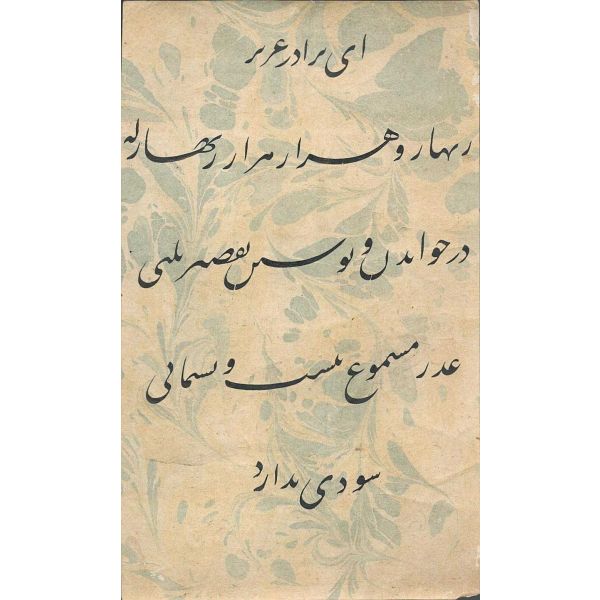 ای برادر عزیز
زنهار و هزار هزار زنهار که
در خواندن و نوشتن تقصیر نکنی
عذر مسموع نیست و پشمانی
سودی ندارد